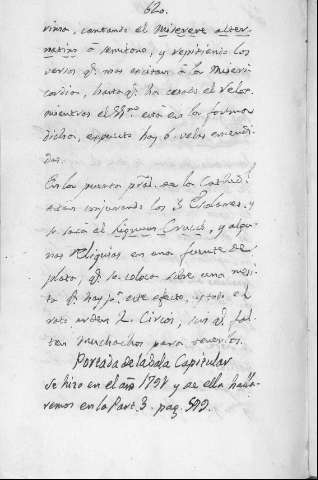 620.
rima, cantando el Miserere alter-
nativo a semitono, y repitiendo los
versos q.e mas excitan â la Miseri-
cordia, hasta q.e ha cesado el Velo.
mientras el SS.mo está en la forma
dicha, expuesto hay 6 velas encendi-
das.
En la puerta pral. de la Catedral
estan conjurando los 3 , y
se saca el Lignum Crucis, y algu-
nas Reliquias en una fuente de
plata, q.e se coloca sobre una mesi-
ta q.e hay p.a este efecto, y todo el
rato arden 2 Cirios, sin q.e fal-
ten muchachos para tenerlos.
Portada de la Sala Capitular
se hizo en el año 1798 y de ella habla-
remos en la Part. 3. pag. 599.